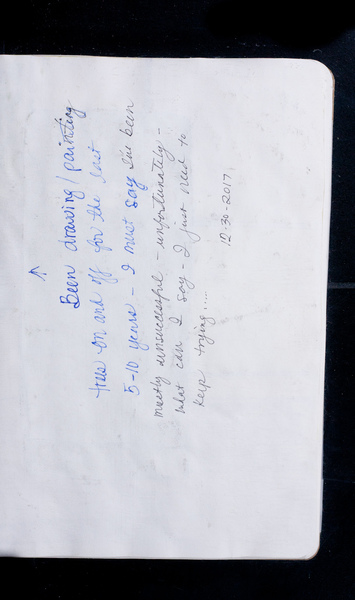 Been drawing/painting
trees on and off for the last
5-10 years - I must say I've been
mostly unsuccessful - unfortunately -
What can I say - I just need to
keep trying....
12-30-2017